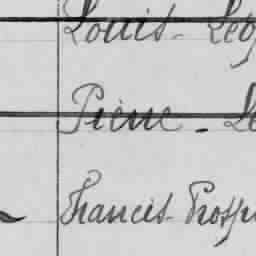 Louis - Léo
Pierre - Lé
Francis Prosp